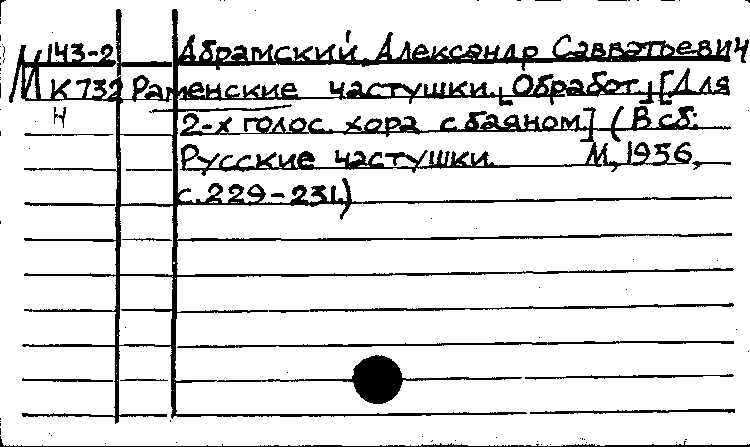 М 143-2 Абрамский, Александр Савватьевич
К 732 Раменские частушки. [Обработ.] [Для
Н 2-х голос. хора с баяном.] (В сб:
Русские частушки. М., 1956,
с. 229-231.)